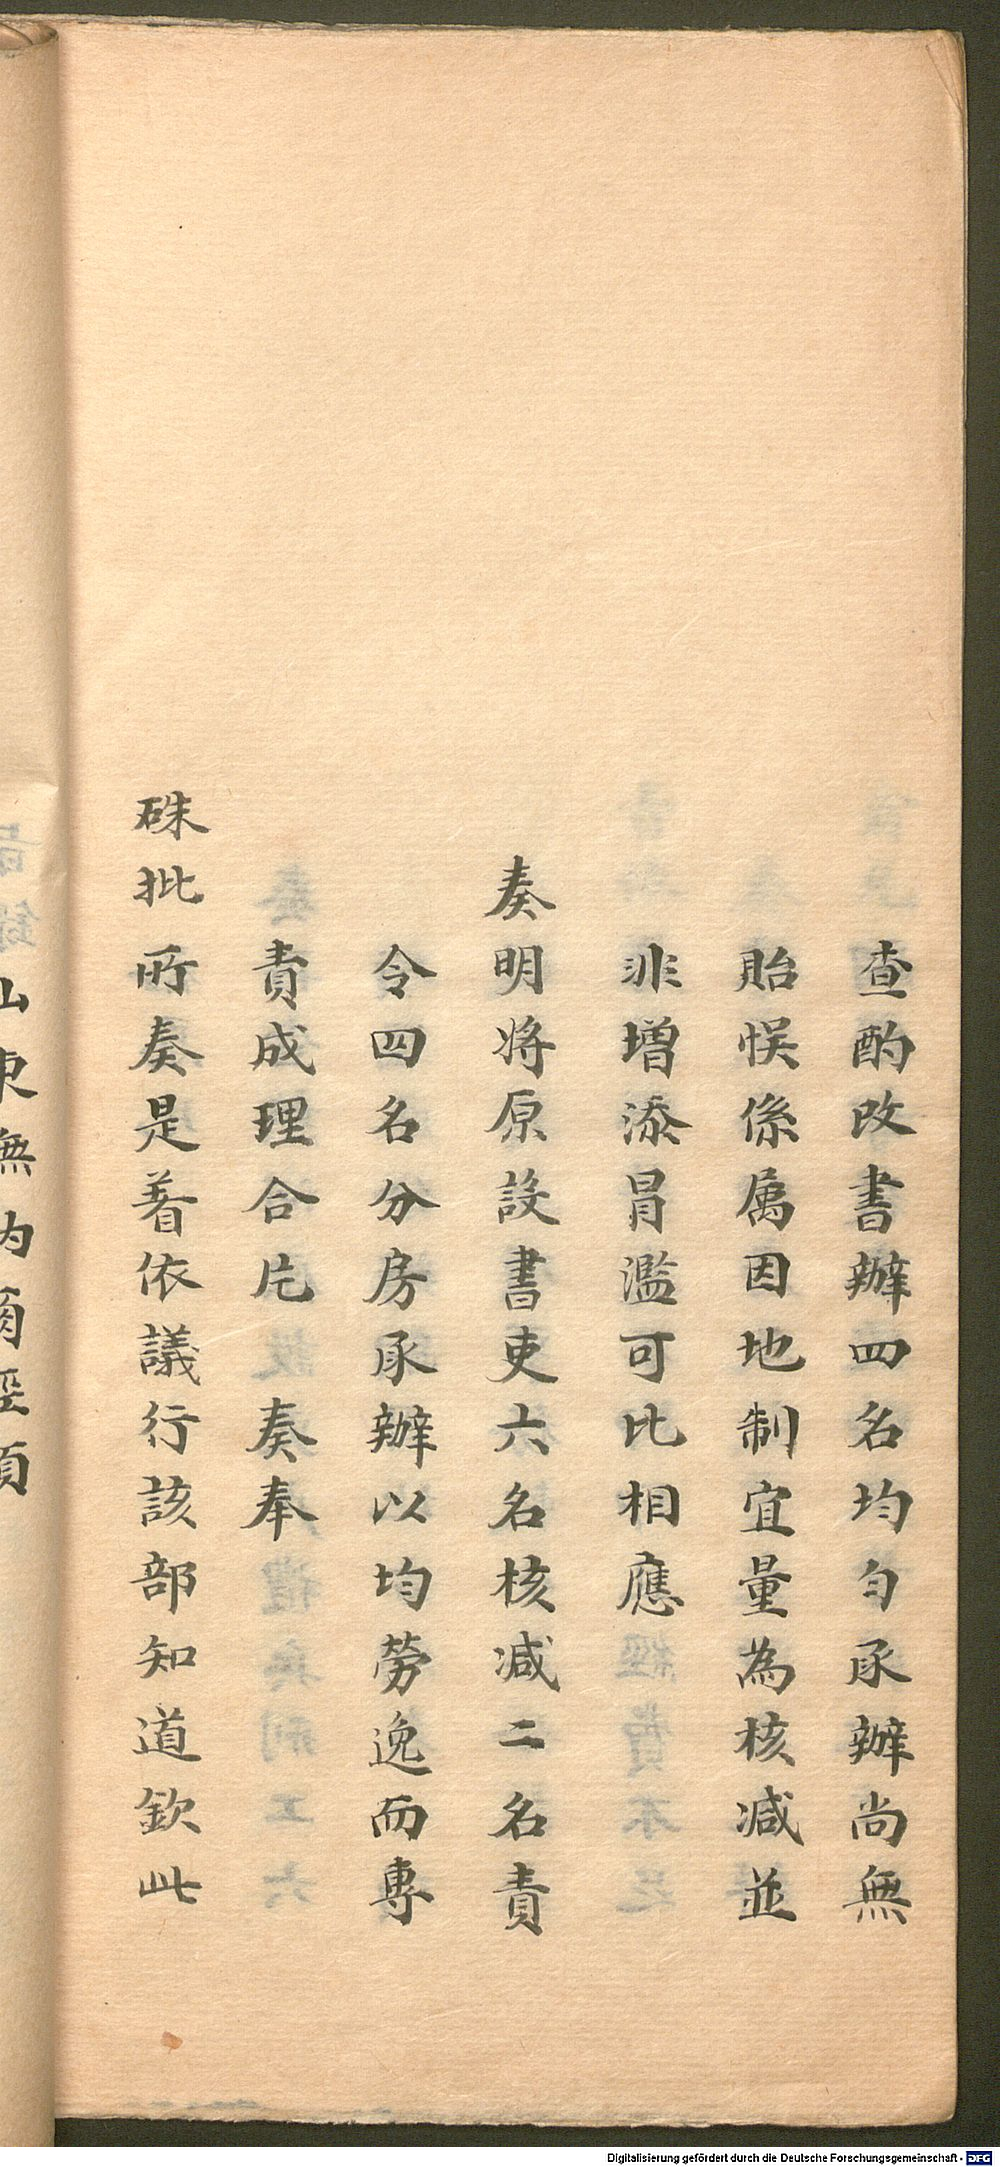 查酌改書辦四名均勻承辦尚無
貽悮係属因地制宜量為核减並
非增添冐濫可比相應
奏明将原設書吏六名核减二名責
令四名分房承辦以均勞逸而專
責成理合片 奏奉
硃批所奏是着依議行該部知道欽此
Digitalisierung gefördert durch die Deutsche Forschungsgemeinschaft - DFG